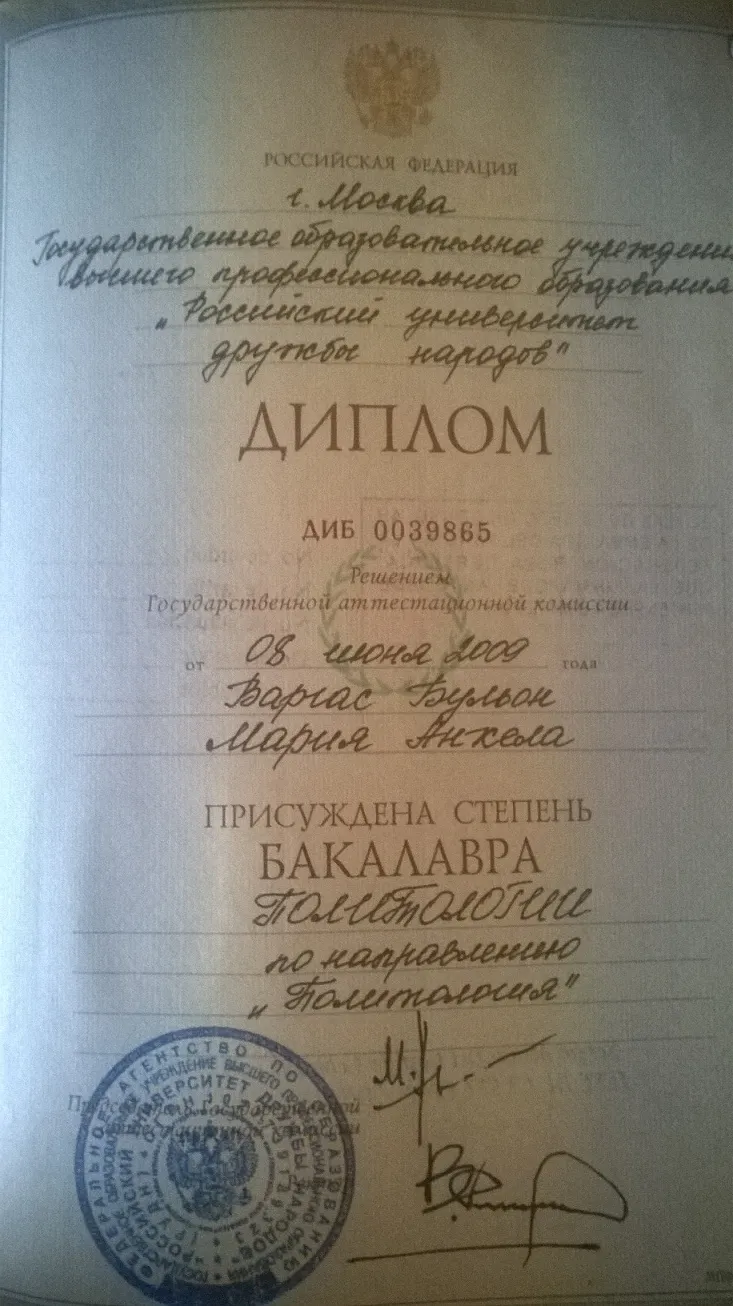 РОССИЙСКАЯ ФЕДЕРАЦИЯ
г. Москва
Государственное образовательное учреждение
высшего профессионального образования
„Российский университет
дружбы народов"
ДИПЛОМ
ДИБ 0039865
Решением
Государственной аттестационной комиссии
от 08 июня 2009 года
Варгас Бульон
Мария Анхела
ПРИСУЖДЕНА СТЕПЕНЬ
БАКАЛАВРА
ПОЛИТОЛОГИИ
по направлению
„Политология"
Председатель Государственной
аттестационной комиссии
ФЕДЕРАЛЬНОЕ АГЕНТСТВО ПО ОБРАЗОВАНИЮ
ГОСУДАРСТВЕННОЕ ОБРАЗОВАТЕЛЬНОЕ УЧРЕЖДЕНИЕ ВЫСШЕГО ПРОФЕССИОНАЛЬНОГО ОБРАЗОВАНИЯ
"РОССИЙСКИЙ УНИВЕРСИТЕТ ДРУЖБЫ НАРОДОВ"
(РУДН)